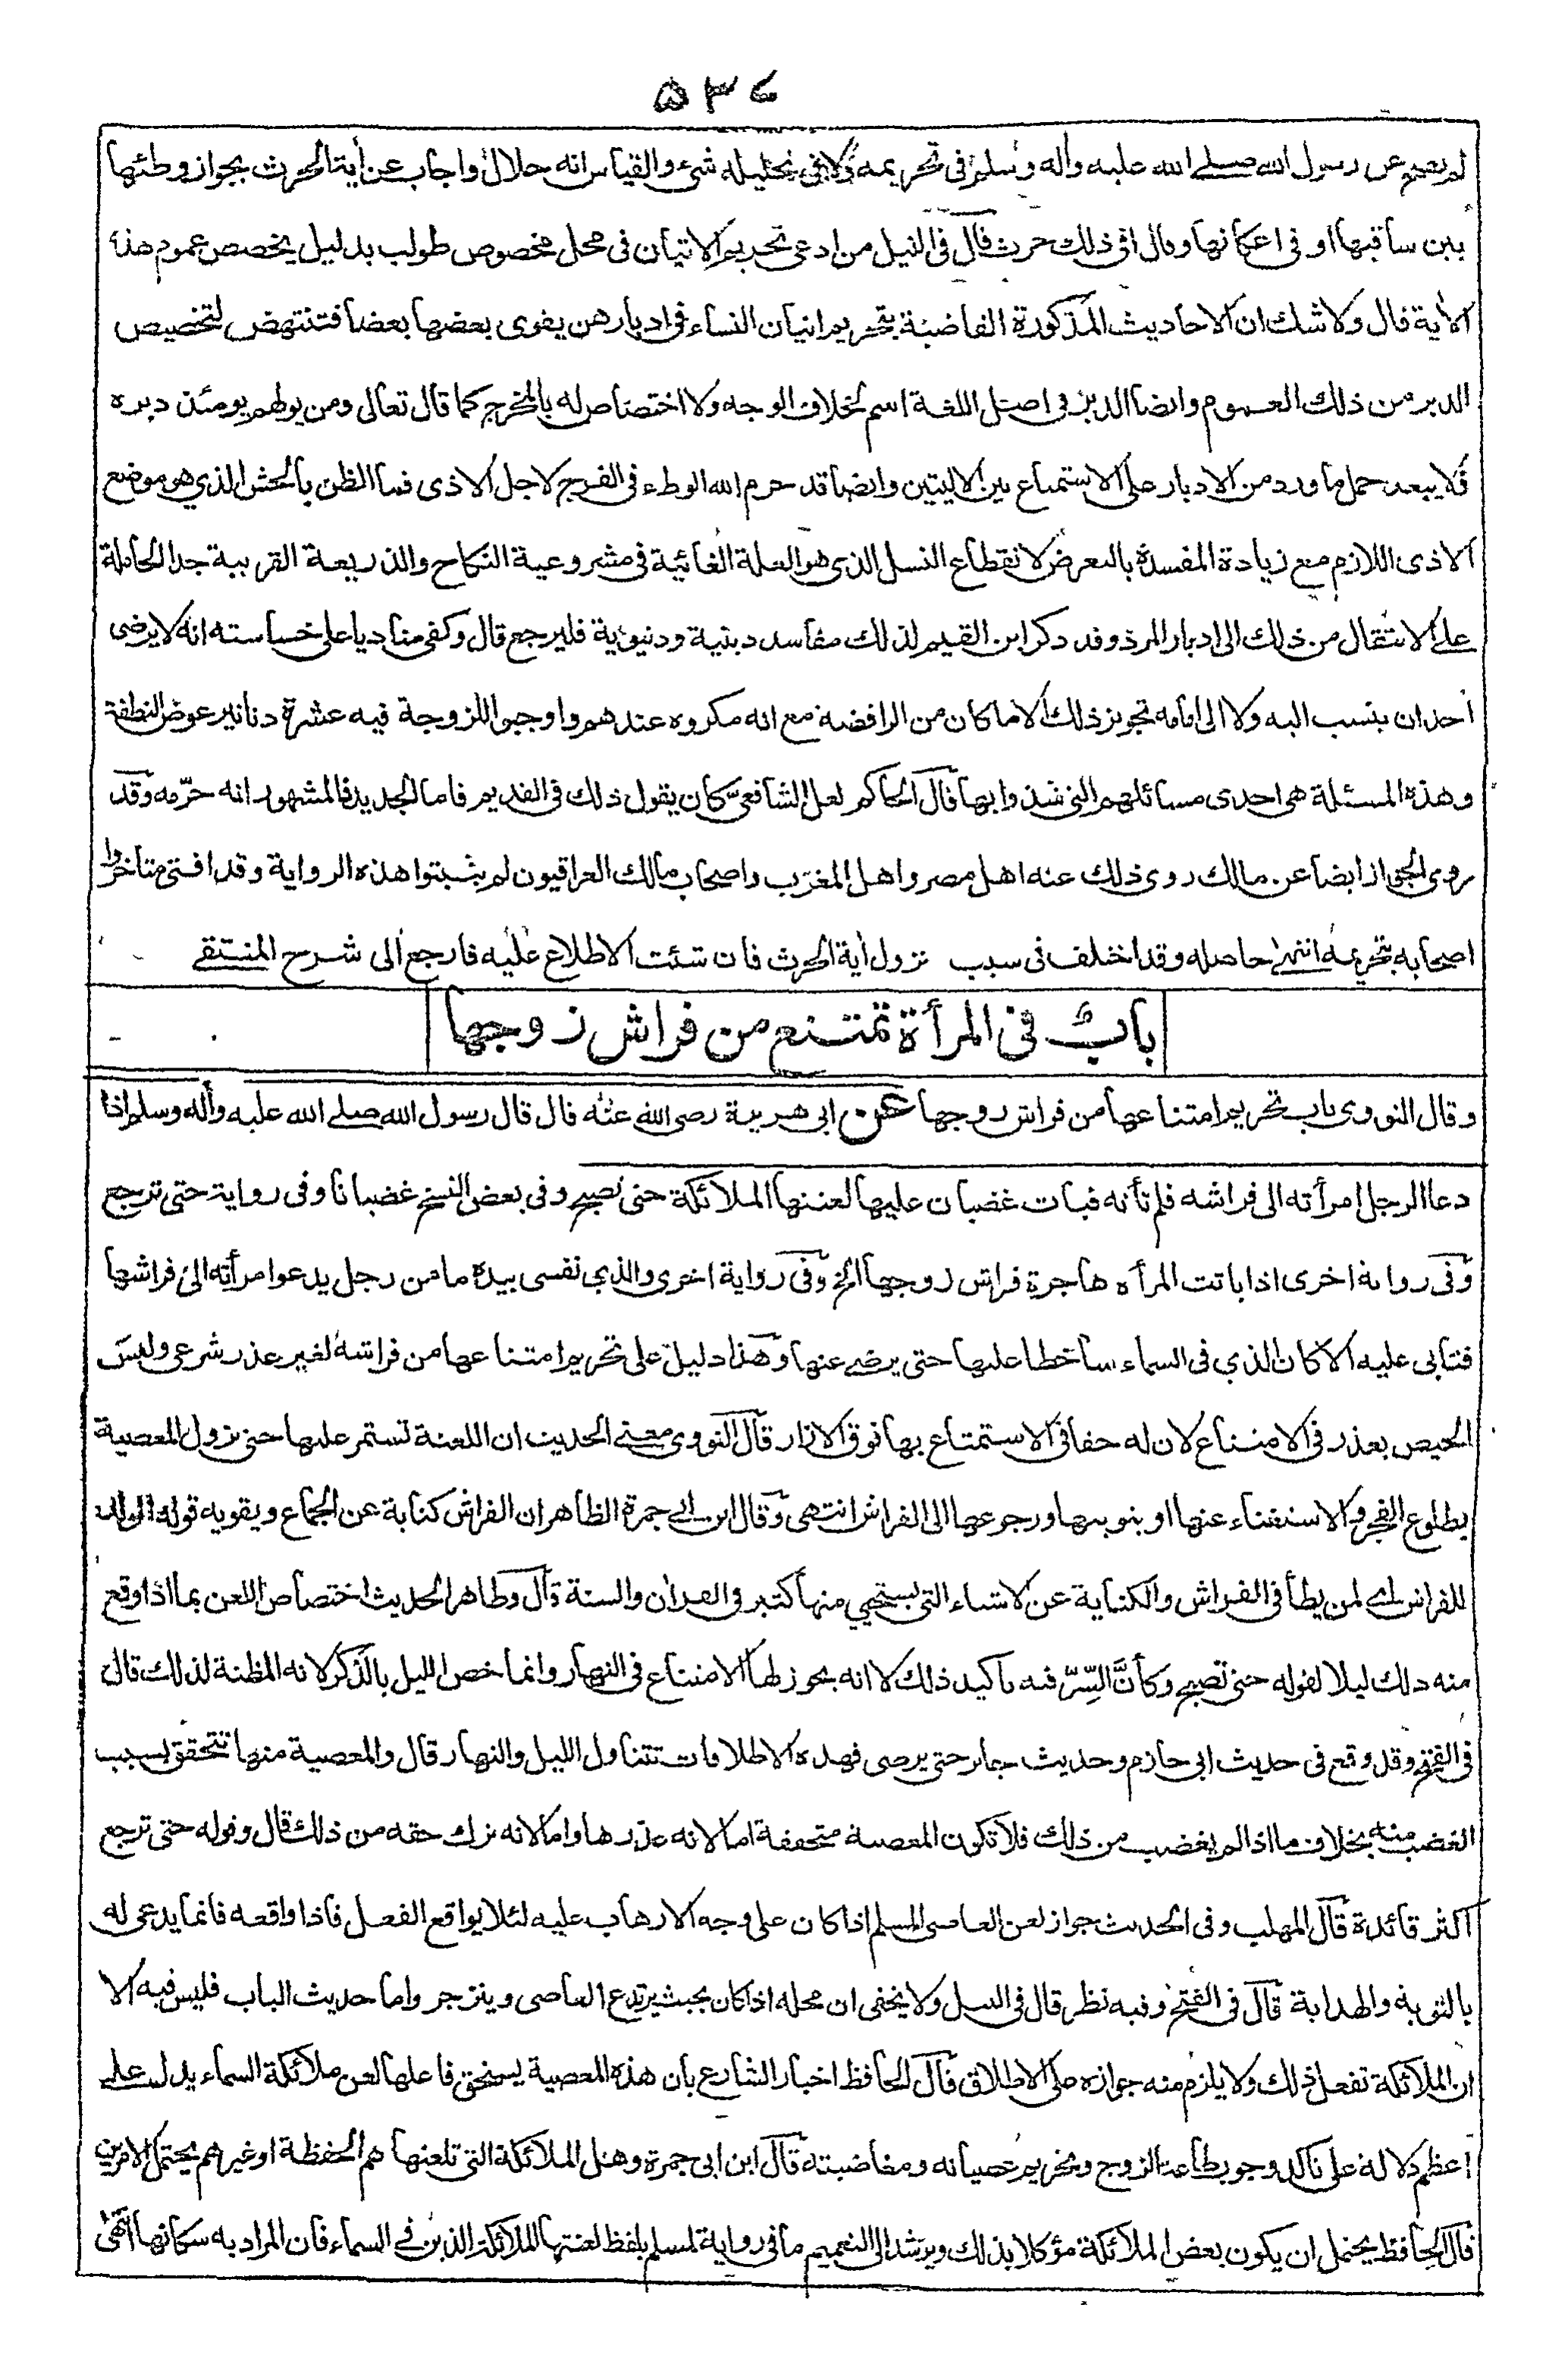 ٥٣٦
لم يصح عن رسول الله صلے الله عليه وآله وسلم فى تحريمه ولا فى تحليله شئ والقياس انه حلال واجاب عن أية الحرث بجواز وطئها
بين ساقيها او فى اعكانها وقال افى ذلك حرث قال فى النيل من ادعى تحريم الاتيان فى محل مخصوص طولب بدليل يخصص عموم هذه
الأية قال ولا شك ان الاحاديث المذكورة القاضية بتحريم اتيان النساء فى ادبارهن يقوى بعضها بعضا فتنتهض لتخصيص
الدبر من ذلك العموم وايضا الدبر فى اصل اللغة اسم لخلاف الوجه ولا اختصاص له بالمخرج كما قال تعالى ومن يولهم يومئذ دبره
فلا يبعد حمل ما ورد من الادبار على الاستمتاع بين الاليتين وايضا قد حرم الله الوطء فى الفرج لاجل الاذى فما الظن بالحش الذي هو موضع
الاذى اللازم مع زيادة المفسدة بالتعرض لانقطاع النسل الذى هو العلة الغائية فى مشروعية النكاح والذريعة القريبة جدا الحاملة
على الانتقال من ذلك الى ادبار المرد وقد ذكر ابن القيم لذلك مفاسد دينية ودنيوية فليرجع قال وكفى مناديا على خساسته انه لا يرضى
احد ان ينسب اليه ولا الى امامه تجويز ذلك الا ما كان من الرافضة مع انه مكروه عندهم واوجبوا للزوجة فيه عشرة دنانير عوض النطفة
وهذه المسئلة هى احدى مسائلهم التى شذوا بها قال الحاكم لعل الشافعى كان يقول ذلك فى القديم فاما الجديد فالمشهور انه حرّمه وقد
روى الجواز ايضا عن مالك روى ذلك عنه اهل مصر واهل المغرب واصحاب مالك العراقيون لم يثبتوا هذه الرواية وقد افتى متاخروا
اصحابه بتحريمه انتهى حاصله وقد اختلف فى سبب نزول أية الحرث فان شئت الاطلاع عليه فارجع الى شرح المنتقے
باب فى المرأة تمتنع من فراش زوجها
وقال النووى باب تحريم امتناعها من فراش زوجها عن ابى هريرة رضى الله عنه قال قال رسول الله صلے الله عليه وأله وسلم اذا
دعا الرجل امرأته الى فراشه فلم تأته فبات غضبان عليها لعنتها الملائكة حتى تصبح وفى بعض النسخ غضبانا وفى رواية حتى ترجع
وفى رواية اخرى اذا باتت المرأة هاجرة فراش زوجها الخ وفى رواية اخرى والذي نفسى بيده ما من رجل يدعوا مرأته الى فراشها
فتابى عليه الا كان الذي فى السماء ساخطا عليها حتى يرضے عنها وهذا دليل على تحريم امتناعها من فراشه لغير عذر شرعى وليس
الحيض بعذر فى الامتناع لان له حقا فى الاستمتاع بها فوق الازار قال النووى معنے الحديث ان اللعنة تستمر عليها حتى تزول المعصية
بطلوع الفجر والاستغناء عنها او بتوبتها ورجوعها الى الفراش انتهى وقال ابن ابے جمرة الظاهر ان الفراش كناية عن الجماع ويقويه قوله الولد
للفراش اے لمن يطأ فى الفراش والكناية عن الاشياء التى يستحيي منها كثير فى القرأن والسنة قال وظاهر الحديث اختصاص اللعن بما اذا وقع
منه ذلك ليلا لقوله حتى تصبح وكأنَّ السِّرّ فيه تاكيد ذلك لا انه يجوز لها الامتناع فى النهار وانما خص الليل بالذكر لانه المظنة لذلك قال
فى الفتح وقد وقع فى حديث ابى حازم وحديث جابر حتى يرضى فهذه الاطلاقات تتناول الليل والنهار قال والمعصية منها تتحقق بسبب
الغضب منه بخلاف ما اذا لم يغضب من ذلك فلا تكون المعصية متحققة اما لانه عذرها واما لانه ترك حقه من ذلك قال وقوله حتى ترجع
اكثر فائدة قال المهلب وفى الحديث جواز لعن العاصى المسلم اذا كان على وجه الارهاب عليه لئلا يواقع الفعل فاذا واقعه فانما يدعى له
بالتوبة والهداية قال فى الفتح وفيه نظر قال فى النيل ولا يخفى ان محله اذا كان بحيث يرتدع العاصى وينزجر واما حديث الباب فليس فيه الا
ان الملائكة تفعل ذلك ولا يلزم منه جوازه على الاطلاق قال الحافظ اخبار الشارع بان هذه المعصية يستحق فاعلها لعن ملائكة السماء يدل على
اعظم دلالة على تاكد وجوب طاعة الزوج وتحريم عصيانه ومغاضبته قال ابن ابى جمرة وهل الملائكة التى تلعنها هم الحفظة او غيرهم يحتمل الامرين
قال الحافظ يحتمل ان يكون بعض الملائكة مؤكلا بذلك ويرشد الى التعميم ما فى رواية لمسلم بلفظ لعنتها الملائكة الذين فے السماء فان المراد به سكانها انتهى